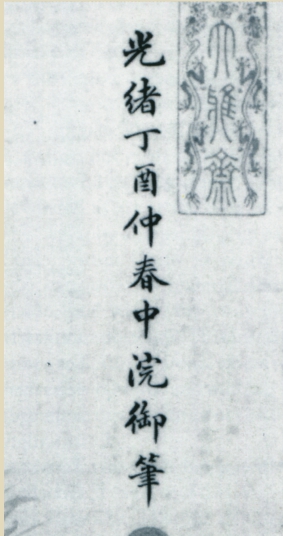 光緒丁酉仲春中浣御筆
大雅齋